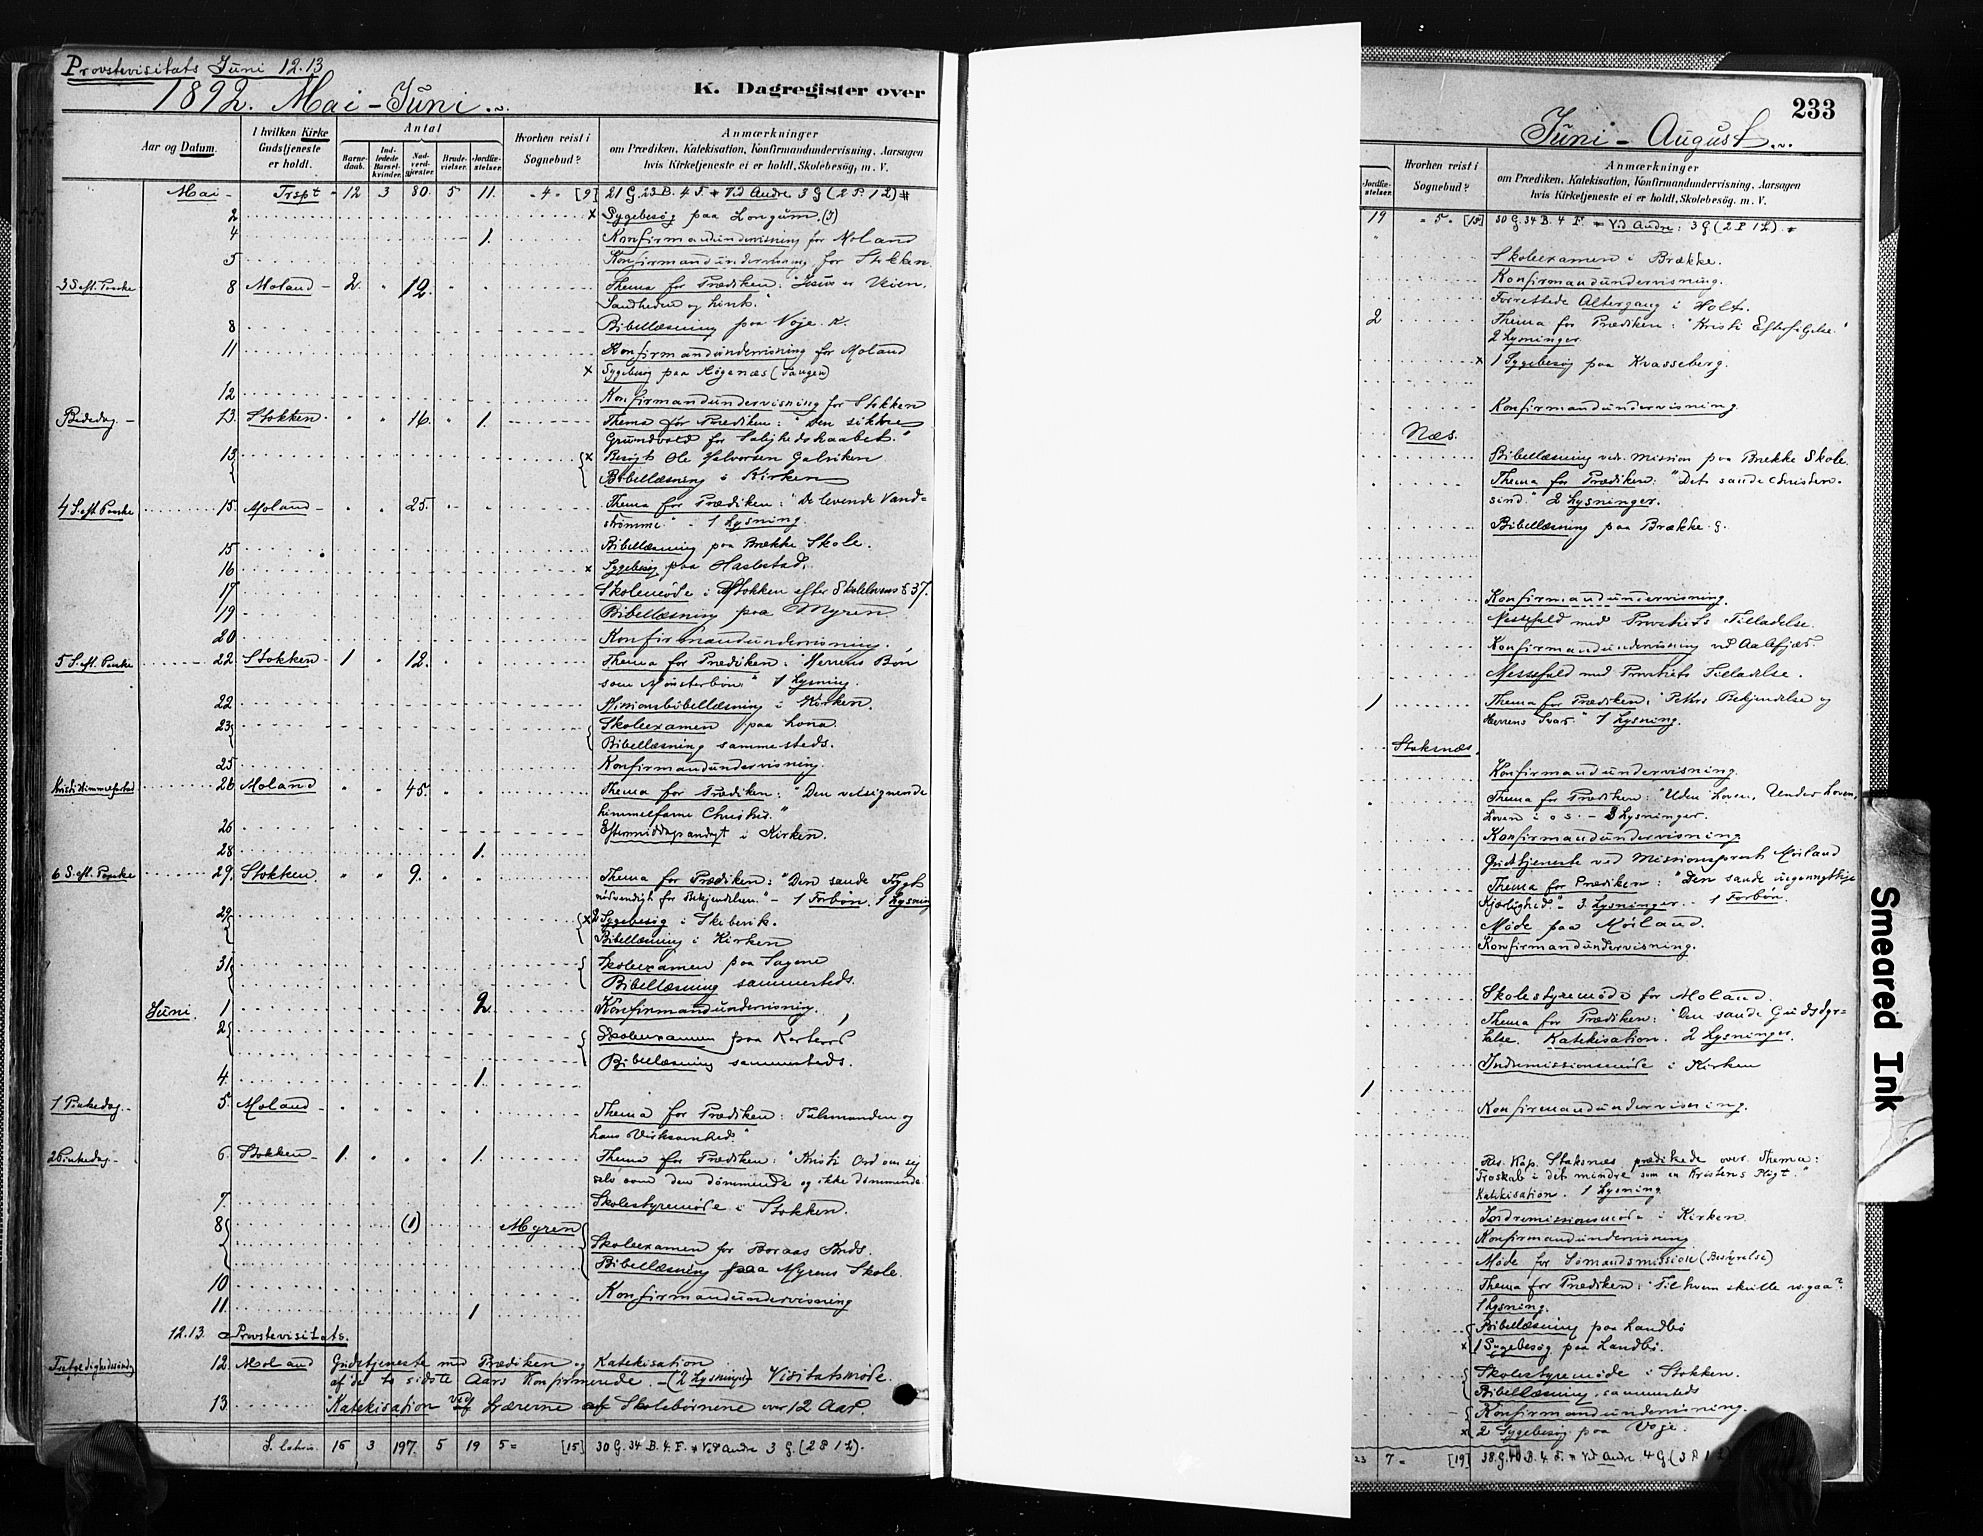 Provstevisitats Juni 12.13
1892. Mai - Juni
K. Dagregister over
Aar og Datum.
I hvilken Kirke Gudstjeneste er holdt.
Antal
Barnedaab.
Indledede Barselkvinder.
Nadverdgjæster.
Brudevielser.
Jordfæstelser.
Hvorhen reist i Sognebud?
Anmærkninger
om Prædiken, Katekisation, Konfirmandundervisning, Aarsagen
hvis Kirketjeneste ei er holdt, Skolebesøg, m. V.
Mai - Trspt - 12 3 80. 5 11. 4 [9] 21 G. 23 B. 4 F. * Vid Andre 3 G (2 P. 1 L) #
2 x Sygebesøg paa Longum.
4 1. Konfirmandundervisning for Moland
5 Konfirmandundervisning for Stokken.
3 S. eft. Paaske 8 Moland - 2. " 12. Thema for Prædiken: "Jesus er Veien,
Sandheden og Livet."
8 Bibellæsning paa Voje. K.
11 Konfirmandundervisning for Moland
x Sygebesøg paa Høgenæs (Tangen)
12 Konfirmandundervisning for Stokken
Bededag - 13. Stokken. " " 16. " 1. Thema for Prædiken: "Den sikkre
Grundvold for Salighedshaabet."
13. x Besøgt Ole Halvorsen
Bibellæsning i Kirken
4 S. eft. Paaske 15. Moland - 25. Thema for Prædiken: "De levende Vand=
strømme" - 1 Lysning.
15 Bibellæsning paa Brække Skole.
16 x Sygebesøg paa Haslestad.
17 Skolemøde i Stokken efter Skolelovens § 37.
19 Bibellæsning paa Myren
20 Konfirmandundervisning.
5 S. eft. Paaske 22. Stokken - 1 " 12. Thema for Prædiken: "Herrens Bøn
som Mønsterbøn." 1 Lysning.
22 Missionsbibellæsning i Kirken.
23 Skoleexamen paa Lona.
Bibellæsning sammesteds.
25 Konfirmandundervisning.
Kristi Himmelfartsd. 26 Moland " " 45. Thema for Prædiken: "Den velsignende
himmelfarne Christus."
26 Eftermiddagsandagt i Kirken.
28 1.
6 S. eft. Paaske 29. Stokken. " " 9. Thema for Prædiken: "Den sande Frygt
nødvendigt for Bekjendelsen" - 1 Forbøn. 1 Lysning
29 x 2 Sygebesøg i Skibevik.
Bibellæsning i Kirken
31 Skoleexamen paa Sagene
Bibellæsning sammesteds.
Juni. 1 2. Konfirmandundervisning.
2 Skoleexamen paa
Bibellæsning sammesteds.
4 1.
1 Pinsedag - 5. Moland - Thema for Prædiken: Talsmanden og
hans Virksomhed."
2 Pinsedag - 6. Stokken - 1. 1. Thema for Prædiken: "Kristi Ord om sig
selv som den dømmende og ikke dømmende.
7. Skolestyremøde i Stokken.
8 (1) Myren Skoleexamen for Boraas Kreds.
Bibellæsning paa Myrens Skole.
10 Konfirmandundervisning
11. 1
12.13. Provstevisitats.
Trefoldighedssøndag 12. Moland Gudstjeneste med Prædiken og Katekisation
af de to sidste Aars Konfirmerede. - (2 Lysninger) Visitatsmøde.
13 Katekisation ved Lærerne af Skolebørnene over 12 Aar.
S. latus. 15 3 197. 5 19 5 = [15] 30 G. 34 B. 4. F. * Ved Andre 3 G. (2 P 1 L).
233
Juni - August
Jordfæstelser.
Hvorhen reist i Sognebud?
Anmærkninger
om Prædiken, Katekisation, Konfirmandundervisning, Aarsagen
hvis Kirketjeneste ei er holdt, Skolebesøg, m. V.
19 5 [15] 30 G. 34 B. 4 F. * Vid Andre: 3 G (2 P 1 L). *
Skoleexamen i Brække.
Konfirmandundervisning.
Forrettede Altergang i Holt.
2 Thema for Prædiken: "Kristi Efterfølgelse."
2 Lysninger.
x 1 Sygebesøg paa Kvasseberg.
Konfirmandundervisning.
Næs.
Bibellæsning vedr. Mission paa Brekke Skole.
Thema for Prædiken: "Det sande Christen-
sind." 2 Lysninger.
Bibellæsning paa Brække G.
Konfirmandundervisning.
Messefald med Provstiets Tilladelse.
Konfirmandundervisning ved Aalefjær.
Messefald med Provstiets Tilladelse.
1 Thema for Prædiken: "Peters Bekjendelse og
Herrens Svar" 1 Lysning.
Staksnæs.
Konfirmandundervisning.
Thema for Prædiken: "Uden Loven, Under Loven,
Loven i os. - 3 Lysninger.
Konfirmandundervisning
Gudstjeneste ved Missionsprest Møiland
Thema for Prædiken: "Den sande uegennyttige
Kjærlighed." - 3 Lysninger. - 1 Forbøn.
Møde paa Møiland.
Konfirmandundervisning.
Skolestyremøde for Moland.
Thema for Prædiken: "Den sande Gudsdyr=
kelse. Katekisation. 2 Lysninger.
Indremissionsmøde i Kirken
1
Konfirmandundervisning.
Res. Kap. Staksnæs prædikede over Thema:
Troskab i det mindre som en Kristens Pligt."
Katekisation. 1 Lysning
Indremissionsmøde i Kirken
Konfirmandundervisning
Møde for Sømandsmission (Bestyrelse)
Thema for Prædiken: Til hvem skulle vi gaa?
1 Lysning.
Bibellæsning paa Landbø
x 1 Sygebesøg paa Landbø.
Skolestyremøde i Stokken.
Bibellæsning sammesteds
Konfirmandundervisning.
x 2 Sygebesøg paa Voje.
23 7 = [19] 38. G. 40 B. 4 F. * Ved Andre 4 G (3 P. 1
Smeared Ink